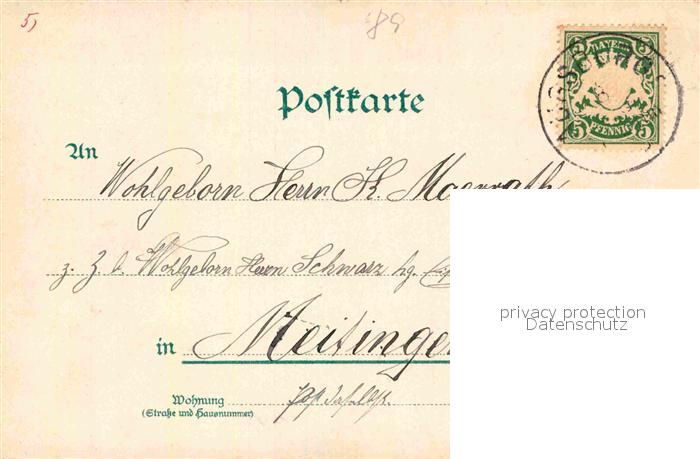 5)
89
BAYERN
5 5
PFENNIG
5 5
Postkarte
An
Wohlgeborn Herrn K.
z. Z. b. Wohlgeborn Herrn Schwarz hg.
in Meitingen
Wohnung
(Straße und Hausnummer)
privacy protection
Datenschutz